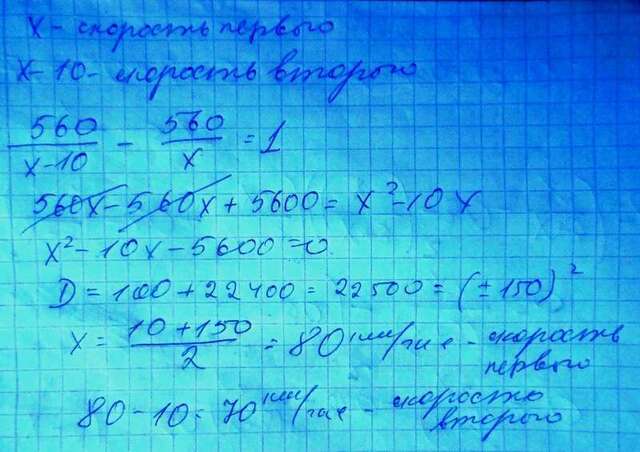 x - скорость первого
x - 10 - скорость второго
560/(x-10) - 560/x = 1
560x - 560x + 5600 = x² - 10x
x² - 10x - 5600 = 0
D = 100 + 22400 = 22500 = (±150)²
x = (10 + 150)/2 = 80 км/час - скорость первого
80 - 10 = 70 км/час - скорость второго